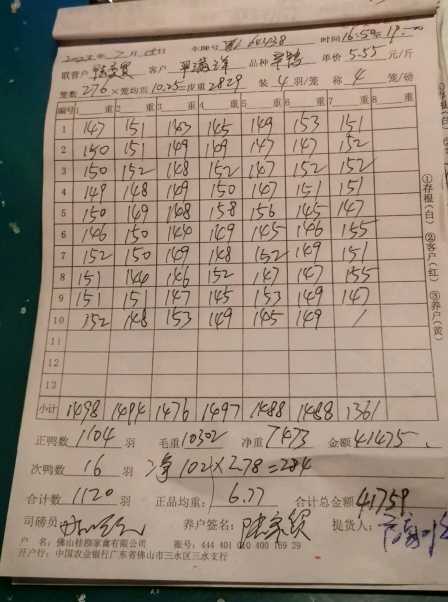 时间16:50 19
联营户 客户 品种 单价5.55元/斤
笼数276×笼均重10.25=皮重2829 装4羽/笼 称4笼/磅
编号 1 重 2 重 3 重 4 重 5 重 6 重 7 重 8 重
1 147 151 143 145 149 153 151
2 150 151 149 149 147 147 152
3 150 152 148 152 147 152 152
4 149 148 149 150 147 151 151
5 150 149 148 158 156 145 147
6 146 150 144 149 145 146 155
7 152 150 149 148 152 149 151
8 151 144 146 152 147 147 155
9 151 151 147 145 153 149 147
10 152 148 153 149 145 149 /
11
12
13
小计 1498 1494 1476 1497 1488 1488 1361
正鸭数1104羽 毛重10302 净重7473 金额41475
次鸭数16羽 净102×2.78=284
合计数1120羽 正品均重:6.77 合计总金额41759
司磅员 养户签名: 提货人:
户 名:佛山桂柳家禽有限公司 账号:444 401 010 400 169 29
开户行:中国农业银行广东省佛山市三水区三水支行
①存根(白) ②客户(红) ③养户(黄)